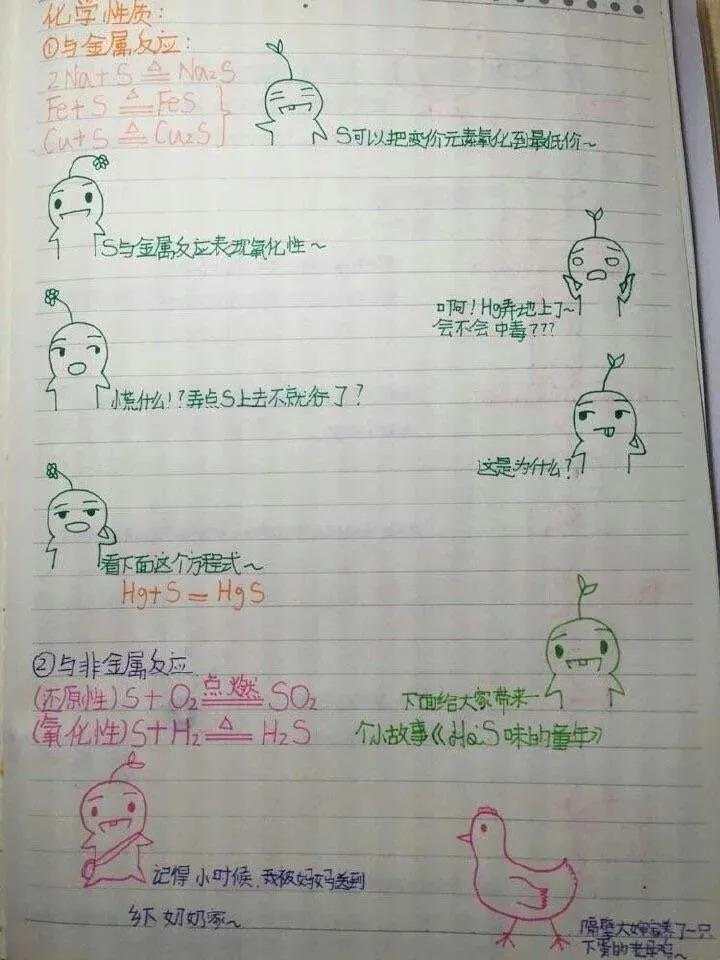 化学性质:
①与金属反应:
2Na+S≜Na₂S
Fe+S≜FeS
Cu+S≜Cu₂S
S可以把变价元素氧化到最低价~
S与金属反应表现氧化性~
啊!Hg弄地上了~
会不会中毒???
慌什么!?弄点S上去不就行了?
这是为什么?
看下面这个方程式~
Hg+S=HgS
②与非金属反应
(还原性)S+O₂ 点燃 SO₂
(氧化性)S+H₂≜H₂S
下面给大家带来一
个小故事《H₂S味的童年》
记得小时候,我被妈妈送到
乡下奶奶家~
隔壁大婶家养了一只
下蛋的老母鸡~